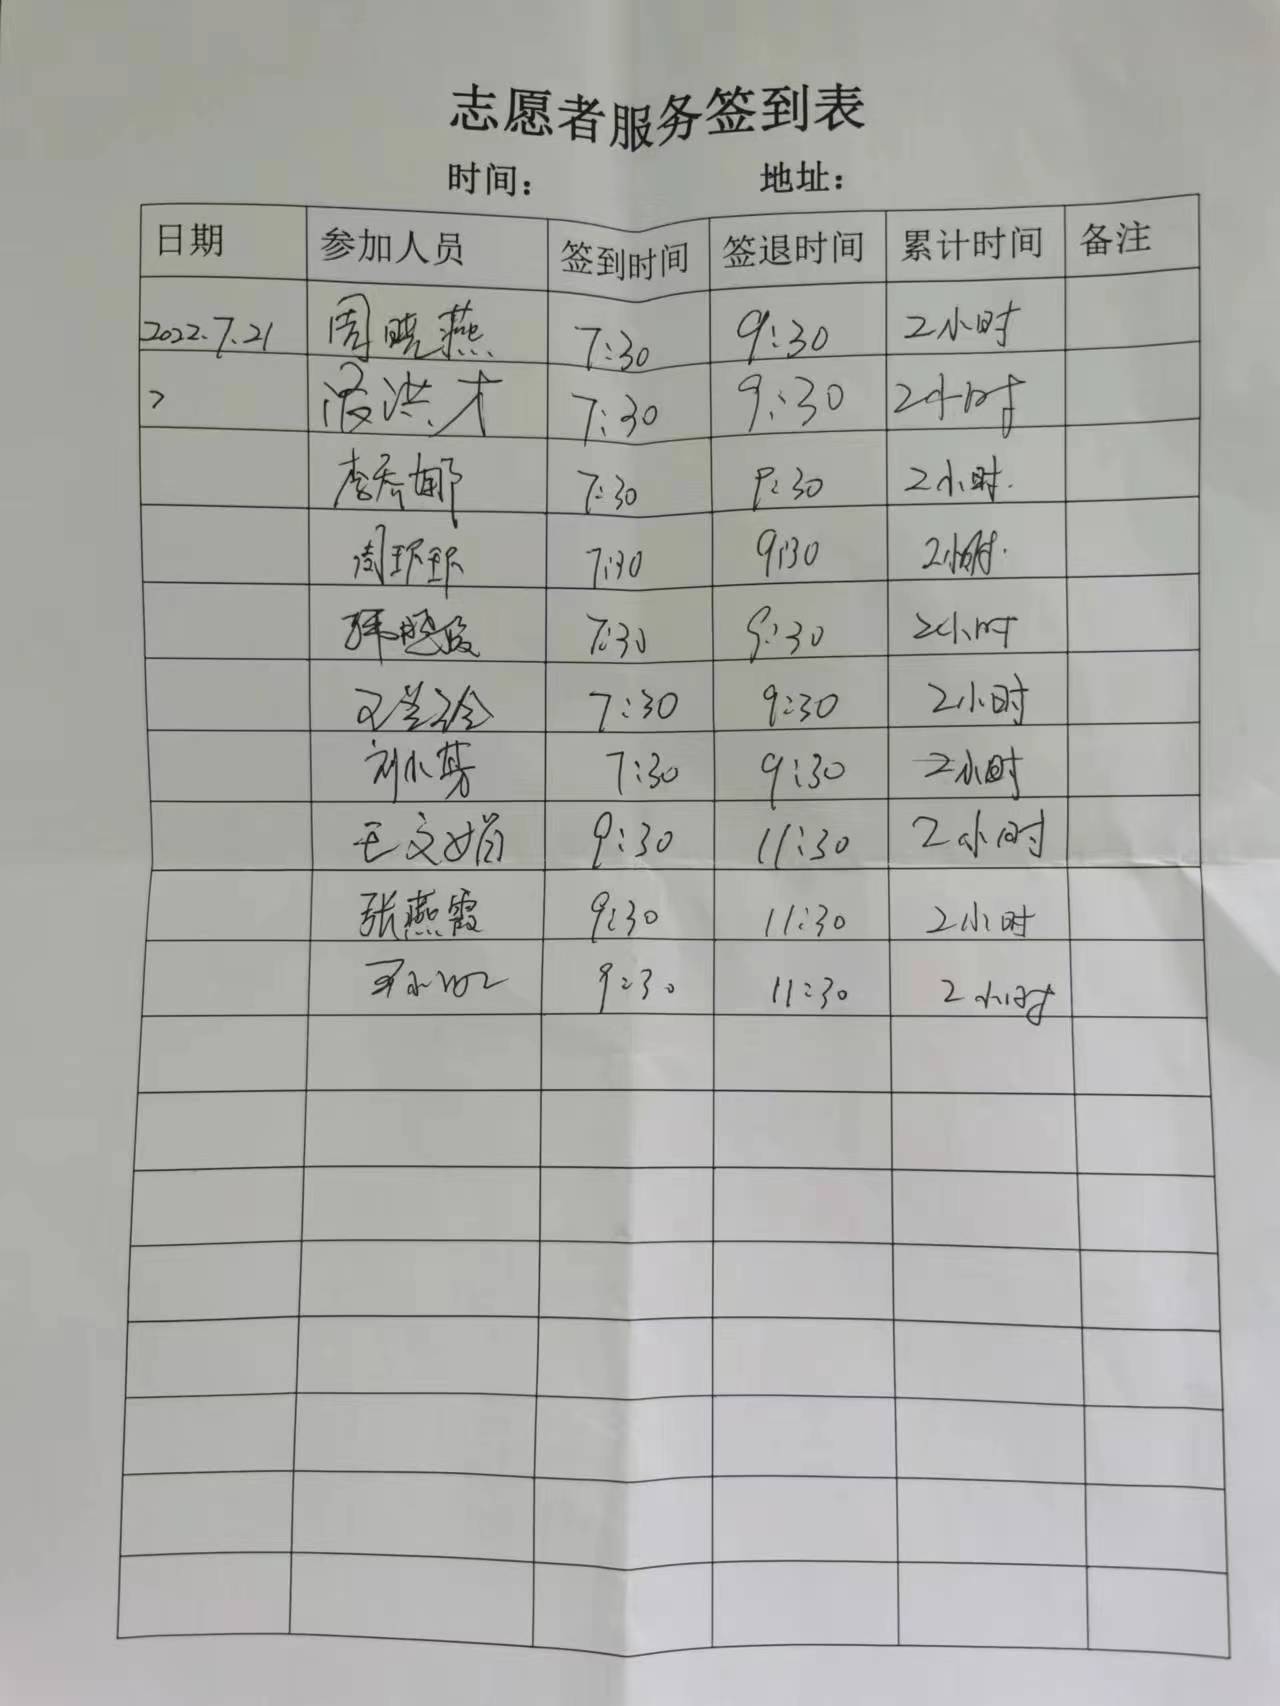 志愿者服务签到表
时间： 地址：
日期 参加人员 签到时间 签退时间 累计时间 备注
2022.7.21 周晓燕 7:30 9:30 2小时
洪才 7:30 9:30 2小时
李 娜 7:30 9:30 2小时
周环环 7:30 9:30 2小时
韩晓霞 7:30 9:30 2小时
7:30 9:30 2小时
刘小芳 7:30 9:30 2小时
王文娟 9:30 11:30 2小时
张燕霞 9:30 11:30 2小时
9:30 11:30 2小时